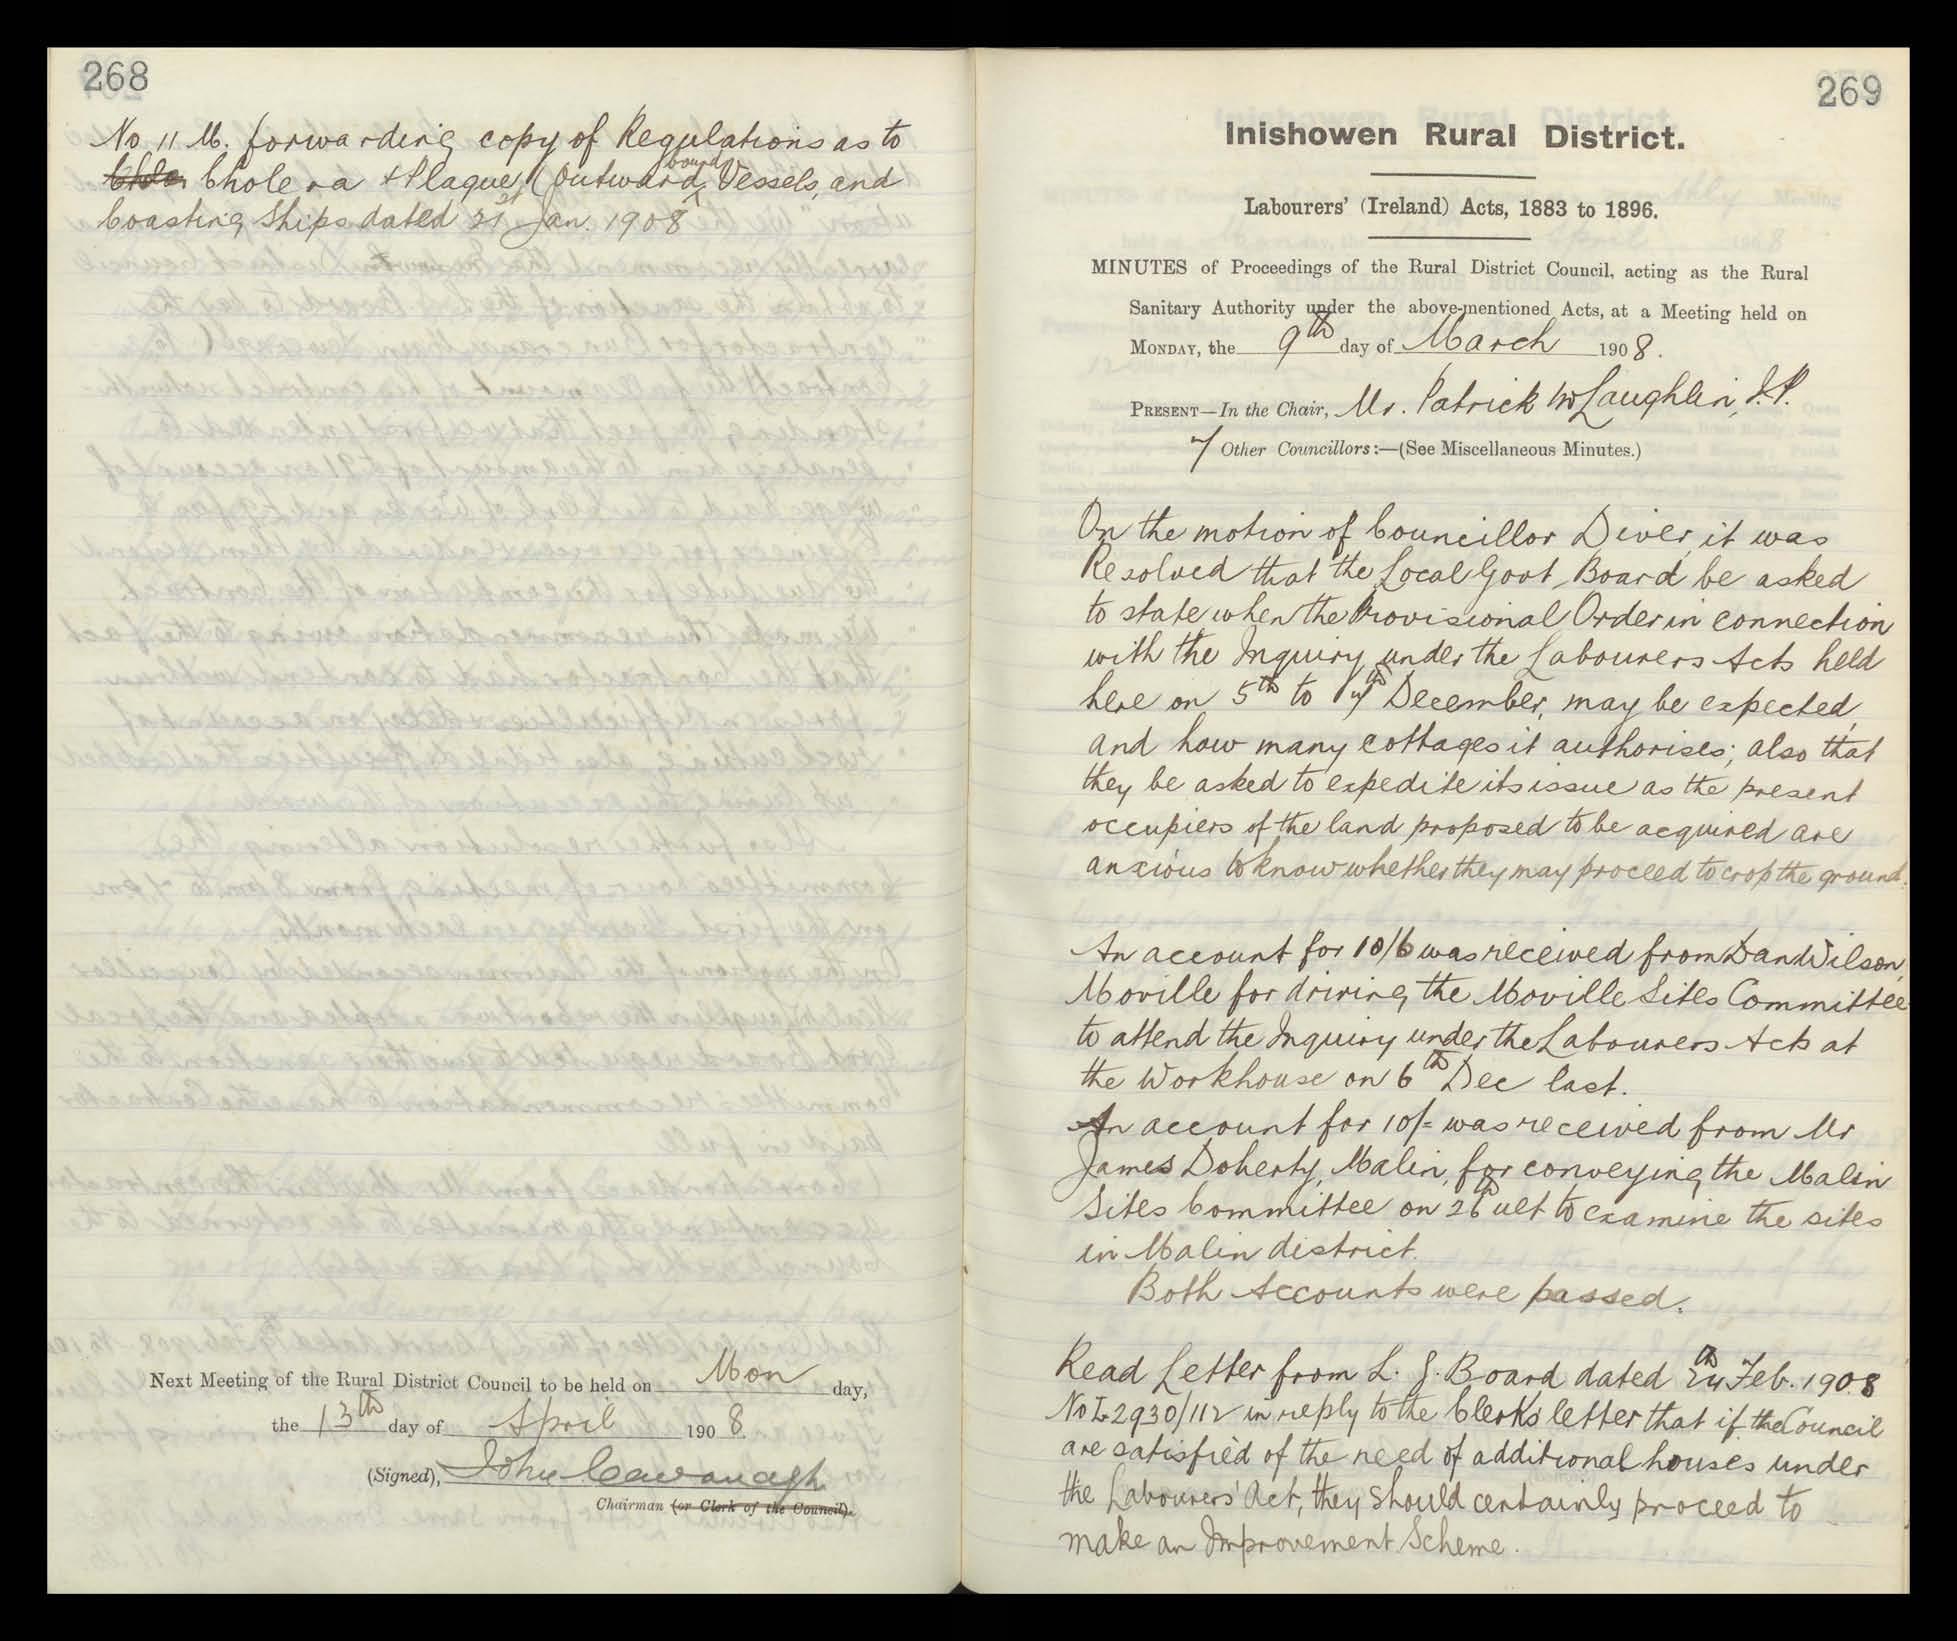 268
No 11 M. forwarding copy of Regulations as to
Cholera & Plague, (Outward bound Vessels, and
Coasting Ships dated 21st Jan. 1908
Next Meeting of the Rural District Council to be held on Mon day,
the 13th day of April 1908.
(Signed), John Cavanagh
Chairman (or Clerk of the Council).
269
Inishowen Rural District.
Labourers' (Ireland) Acts, 1883 to 1896.
MINUTES of Proceedings of the Rural District Council, acting as the Rural
Sanitary Authority under the above-mentioned Acts, at a Meeting held on
MONDAY, the 9th day of March 1908.
PRESENT—In the Chair, Mr. Patrick McLaughlin, J.P.
7 Other Councillors:—(See Miscellaneous Minutes.)
On the motion of Councillor Diver, it was
Resolved that the Local Govt Board be asked
to state when the Provisional Order in connection
with the Inquiry under the Labourers Acts held
here on 5th to 7th December, may be expected,
and how many cottages it authorises; also that
they be asked to expedite its issue as the present
occupiers of the land proposed to be acquired are
anxious to know whether they may proceed to crop the ground.
An account for 10/6 was received from Dan Wilson,
Moville for driving the Moville Sites Committee
to attend the Inquiry under the Labourers Acts at
the Workhouse on 6th Dec last.
An account for 10/= was received from Mr
James Doherty, Malin, for conveying the Malin
Sites Committee on 26th ult to examine the sites
in Malin district.
Both Accounts were passed.
Read Letter from L. G. Board dated 24th Feb. 1908
No L 2930/112 in reply to the Clerk's letter that if the Council
are satisfied of the need of additional houses under
the Labourers' Act, they should certainly proceed to
make an Improvement Scheme.